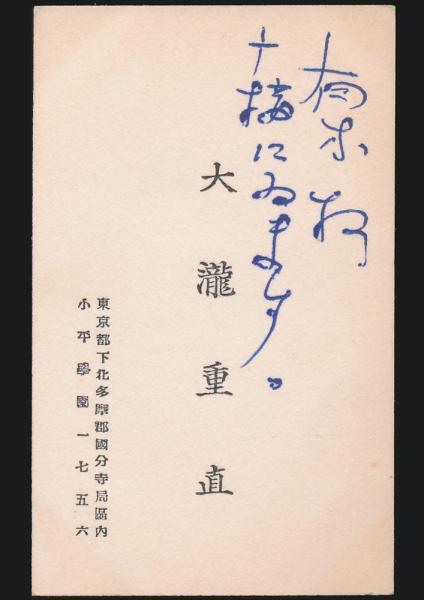 十橋にゐます。
大瀧重直
東京都下北多摩郡國分寺局區內
小平學園一七五六